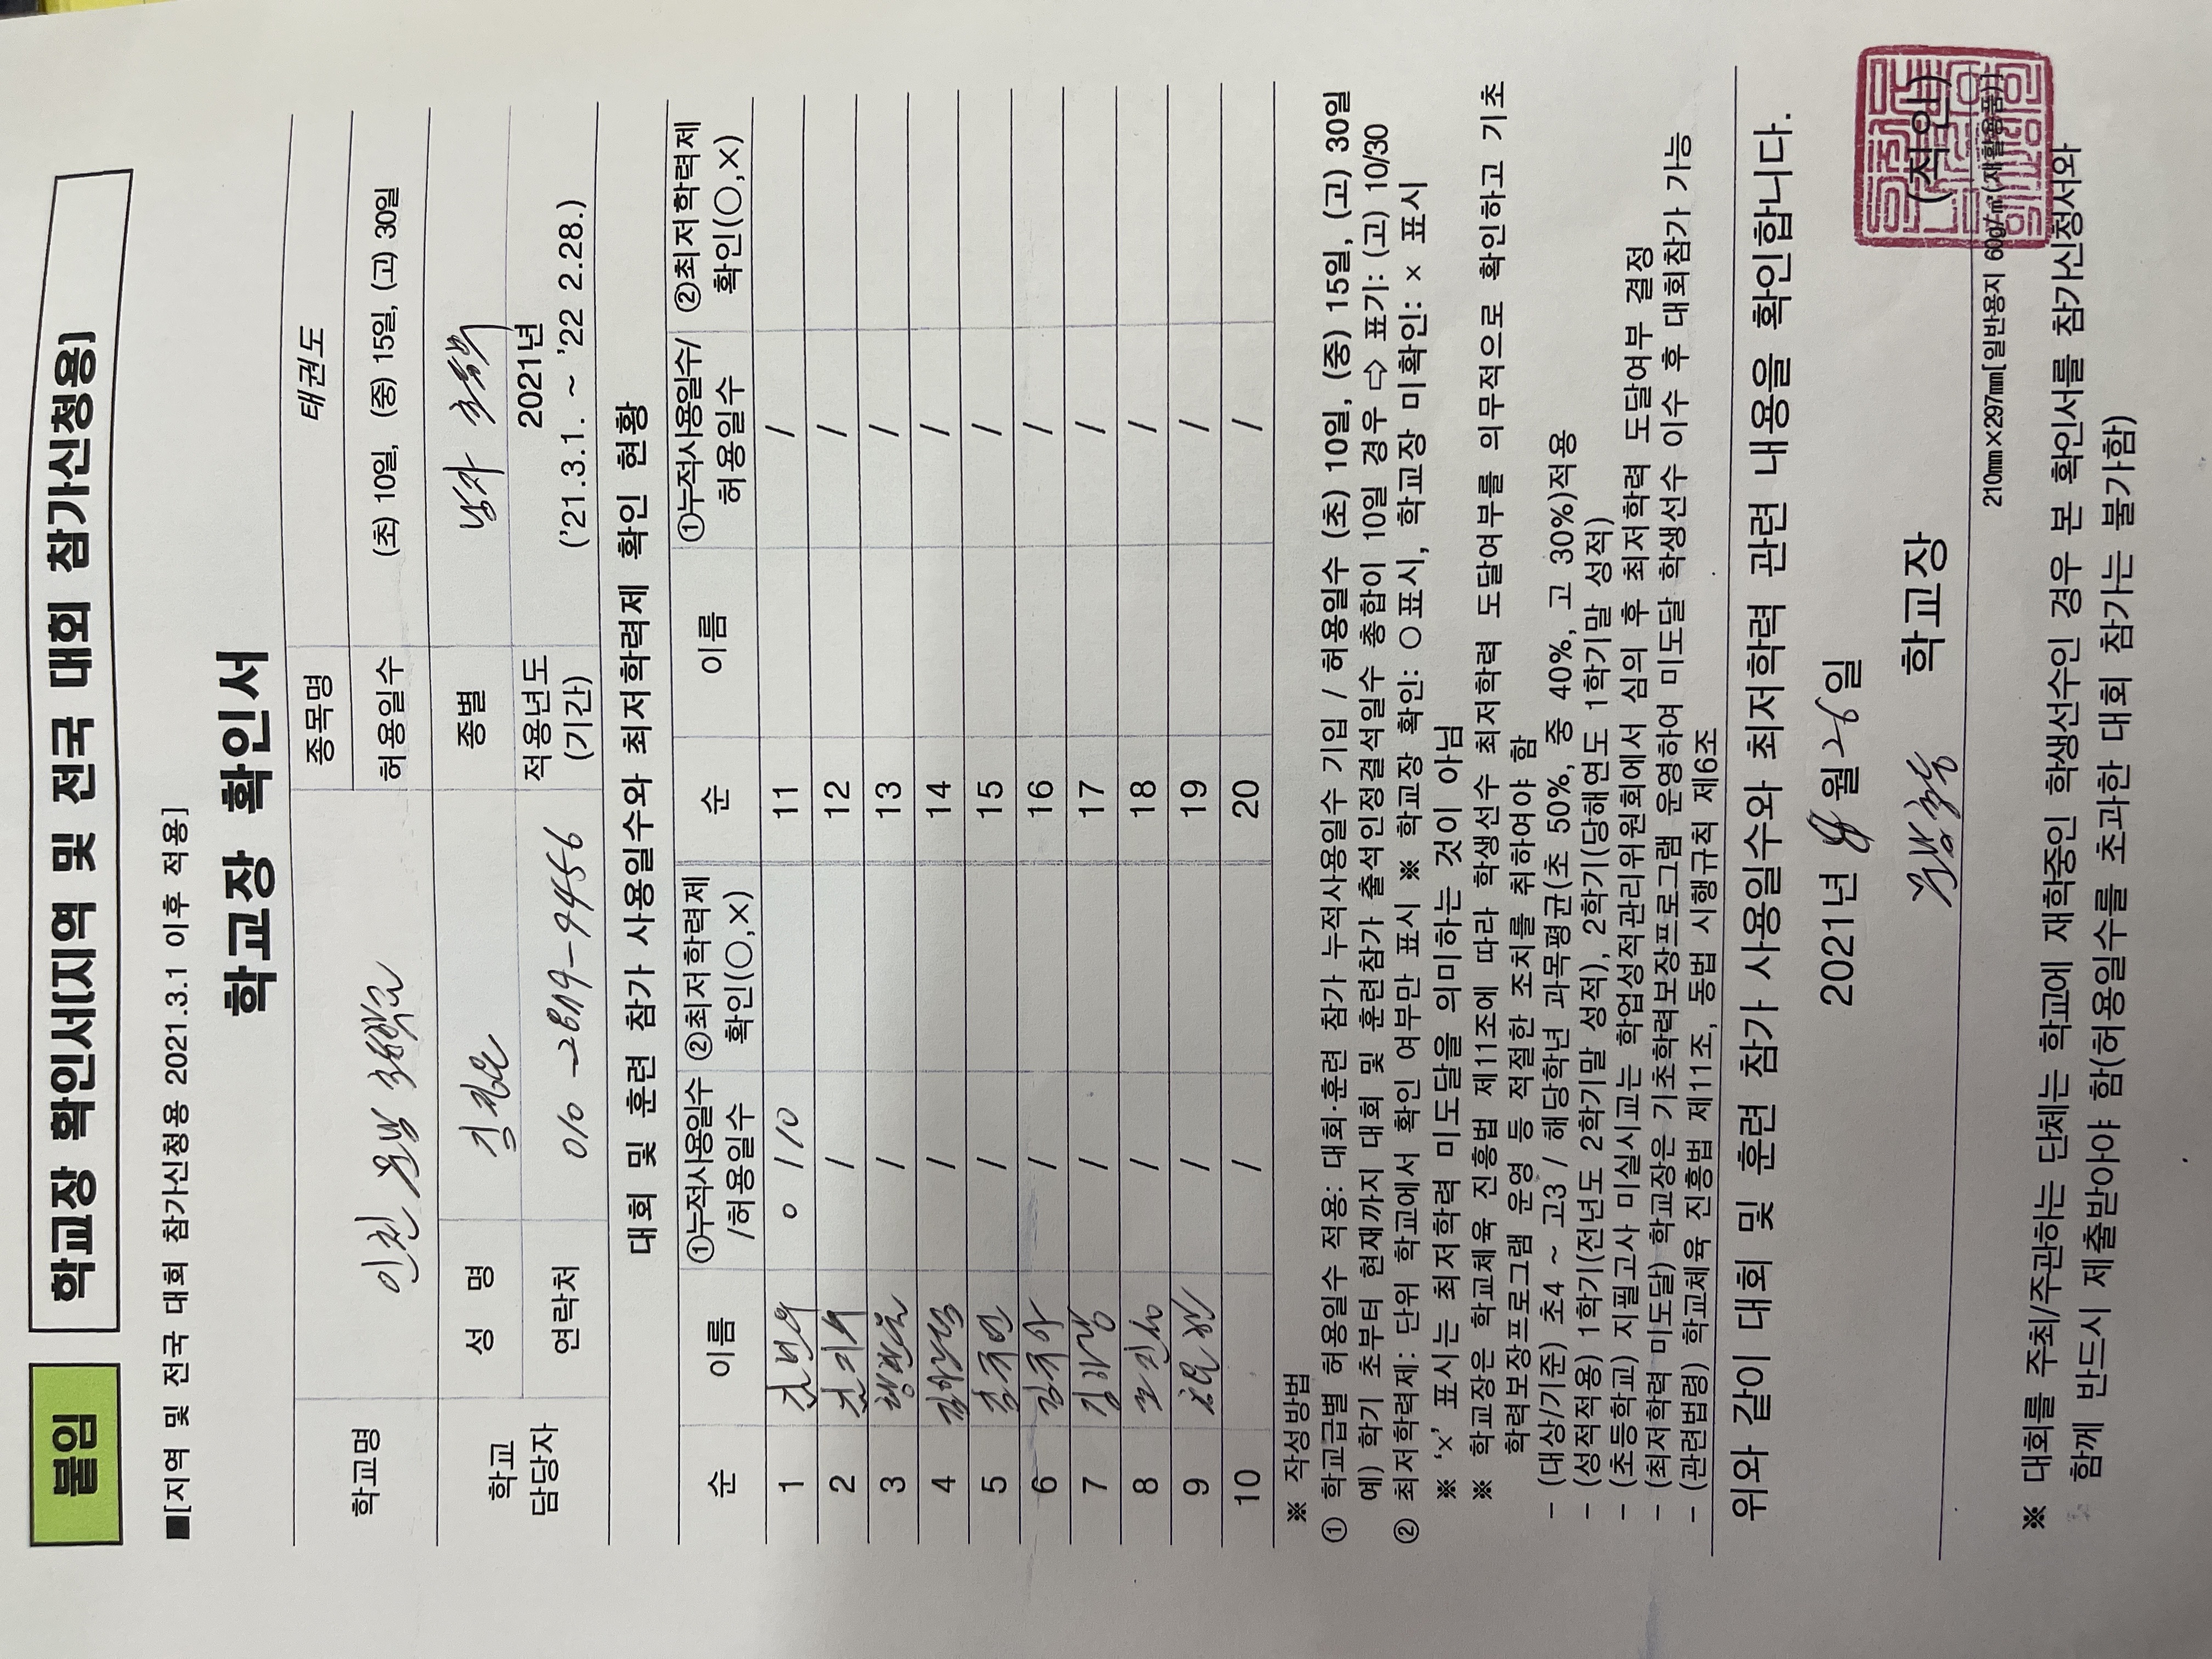 붙임
학교장 확인서[지역 및 전국 대회 참가신청용]
■[지역 및 전국 대회 참가신청용 2021.3.1 이후 적용]
학교장 확인서
학교명 인천 종목명 태권도
허용일수 (초) 10일, (중) 15일, (고) 30일
학교 담당자 성 명 종별 남자
연락처 적용년도 (기간) 2021년 ('21.3.1. ~ '22 2.28.)
대회 및 훈련 참가 사용일수와 최저학력제 확인 현황
순 이름 ①누적사용일수 /허용일수 ②최저학력제 확인(○,×) 순 이름 ①누적사용일수/ 허용일수 ②최저학력제 확인(○,×)
1 0 / 10 11 /
2 / 12 /
3 / 13 /
4 / 14 /
5 / 15 /
6 / 16 /
7 / 17 /
8 / 18 /
9 / 19 /
10 / 20 /
※ 작성방법
① 학교급별 허용일수 적용: 대회·훈련 참가 누적사용일수 기입 / 허용일수 (초) 10일, (중) 15일, (고) 30일
예) 학기 초부터 현재까지 대회 및 훈련참가 출석인정결석일수 총합이 10일 경우 ⇨ 표기: (고) 10/30
② 최저학력제: 단위 학교에서 확인 여부만 표시 ※ 학교장 확인: ○표시, 학교장 미확인: × 표시
※ '×' 표시는 최저학력 미도달을 의미하는 것이 아님
※ 학교장은 학교체육 진흥법 제11조에 따라 학생선수 최저학력 도달여부를 의무적으로 확인하고 기초
학력보장프로그램 운영 등 적절한 조치를 취하여야 함
- (대상/기준) 초4 ~ 고3 / 해당학년 과목평균(초 50%, 중 40%, 고 30%)적용
- (성적적용) 1학기(전년도 2학기말 성적), 2학기(당해연도 1학기말 성적)
- (초등학교) 지필고사 미실시교는 학업성적관리위원회에서 심의 후 최저학력 도달여부 결정
- (최저학력 미도달) 학교장은 기초학력보장프로그램 운영하여 미도달 학생선수 이수 후 대회참가 가능
- (관련법령) 학교체육 진흥법 제11조, 동법 시행규칙 제6조
위와 같이 대회 및 훈련 참가 사용일수와 최저학력 관련 내용을 확인합니다.
2021년 월 26일
학교장 (직인)
210㎜×297㎜[일반용지 60g/㎡(재활용품)]
※ 대회를 주최/주관하는 단체는 학교에 재학중인 학생선수인 경우 본 확인서를 참가신청서와
함께 반드시 제출받아야 함(허용일수를 초과한 대회 참가는 불가함)